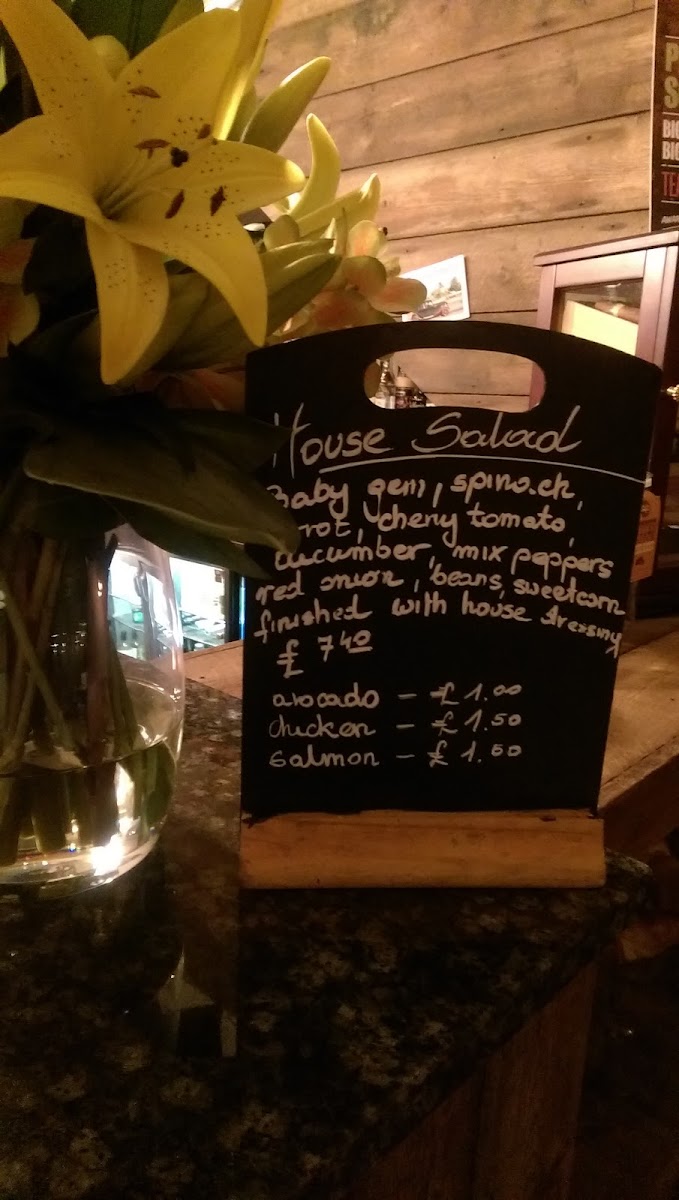 House Salad
Baby gem, spinach,
rrot, cherry tomato,
cucumber, mix peppers
red onion, beans, sweetcorn
finished with house dressing
£ 7.40
avocado - £ 1.00
chicken - £ 1.50
salmon - £ 1.50
P
S
BIG
BIG
TEA